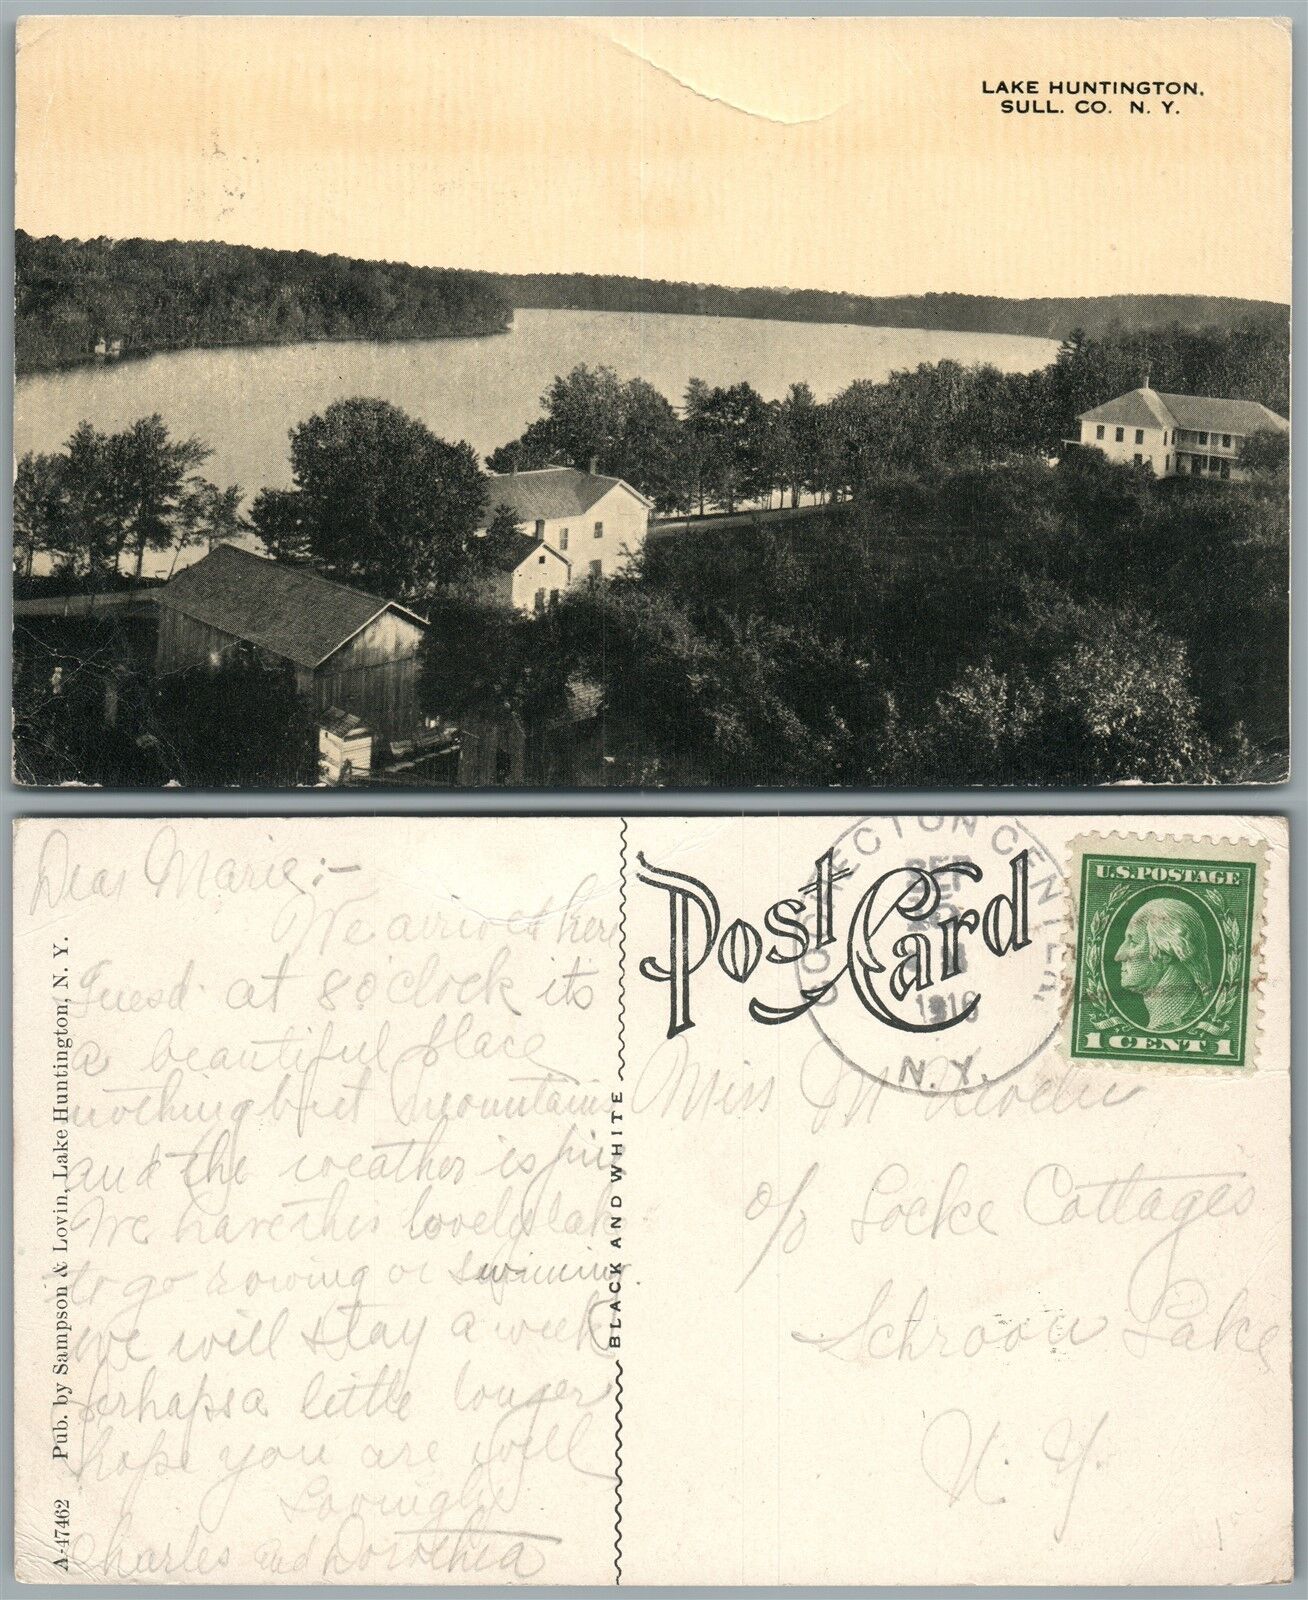 LAKE HUNTINGTON,
SULL. CO. N. Y.
Dear Marie:-
We arrived here
Tuesd. at 8 o'clock its
a beautiful place
nothing but mountains
and the weather is fine
We have this lovely lake
to go rowing or swimming.
we will stay a week
perhaps a little longer
hope you are well
Lovingly
Charles and Dorothea
A-47462 Pub. by Sampson & Lovin, Lake Huntington, N. Y.
BLACK AND WHITE
Post Card
CENTER,
SEP
1916
N.Y.
U.S. POSTAGE
1 CENT 1
Miss M
c/o Locke Cottages
Schroon Lake
N. Y.